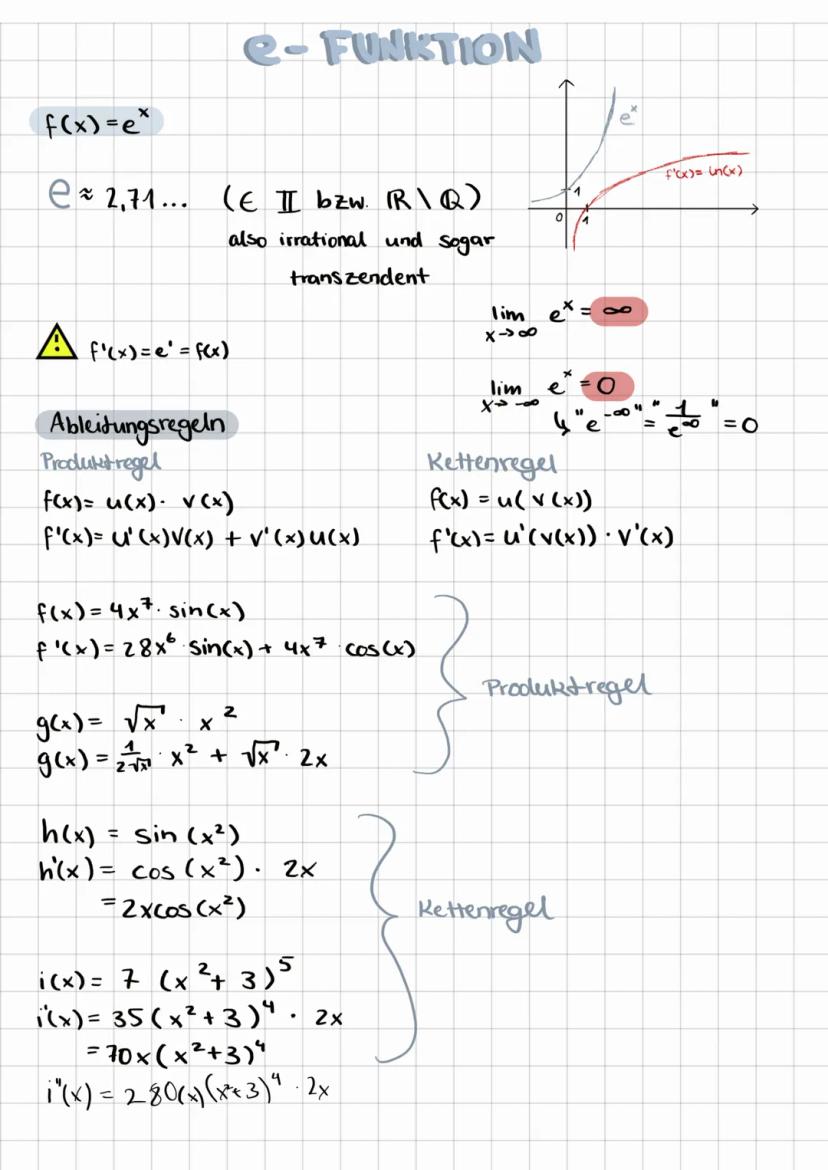 e-FUNKTION
f(x) = eˣ
e ≈ 2,71... (∈ 𝕀 bzw. ℝ \ ℚ)
also irrational und sogar
transzendent
eˣ
f'(x) = ln(x)
1
0 1
lim eˣ = ∞
x→∞
⚠ f'(x) = e' = f(x)
lim eˣ = 0
x→ -∞
↳ "e^-∞" = "1/e^∞" = 0
Ableitungsregeln
Produktregel
f(x) = u(x) · v(x)
f'(x) = u'(x)v(x) + v'(x)u(x)
Kettenregel
f(x) = u(v(x))
f'(x) = u'(v(x)) · v'(x)
f(x) = 4x⁷ · sin(x)
f'(x) = 28x⁶ · sin(x) + 4x⁷ · cos(x)
Produktregel
g(x) = √x · x²
g(x) = 1/(2√x) · x² + √x · 2x
h(x) = sin(x²)
h'(x) = cos(x²) · 2x
= 2xcos(x²)
Kettenregel
i(x) = 7 (x² + 3)⁵
i'(x) = 35(x² + 3)⁴ · 2x
= 70x(x²+3)⁴
i"(x) = 280(x)(x²+3)⁴ · 2x